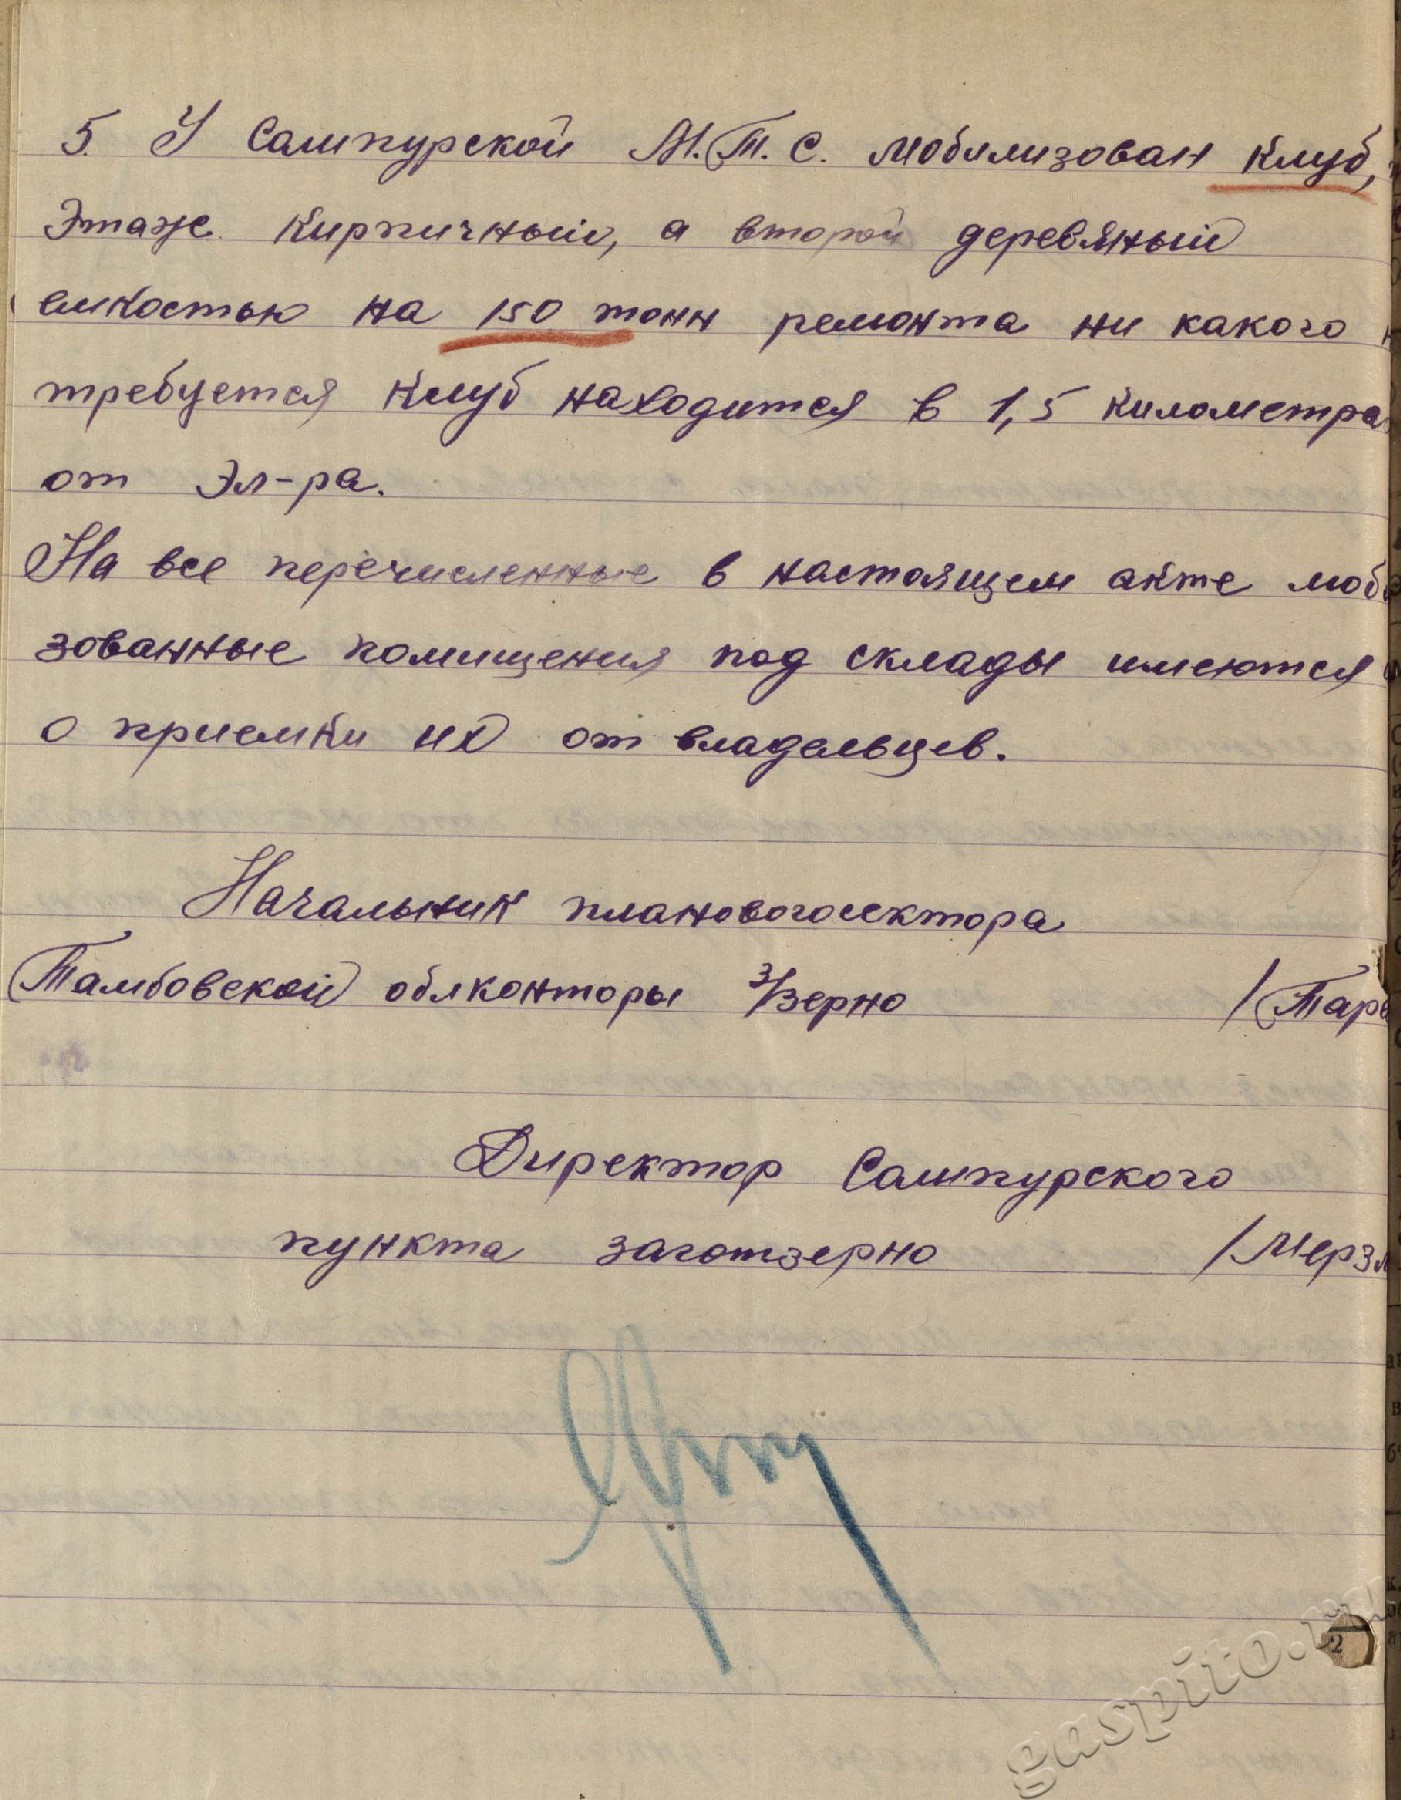 5. У Сампурской М.Т.С. мобилизован клуб,
Этаже кирпичный, а второй деревяный
емкостью на 150 тонн ремонта ни какого
требуется клуб находится в 1,5 километра
от Эл-ра.
На все перечисленные в настоящем акте моби
зованные помищения под склады имеются
о приемки их от владельцев.
Начальник плановогосектора
Тамбовской облконторы З/Зерно /Тара
Директор Сампурского
пункта заготзерно /Мерзл
gaspito.ru
2